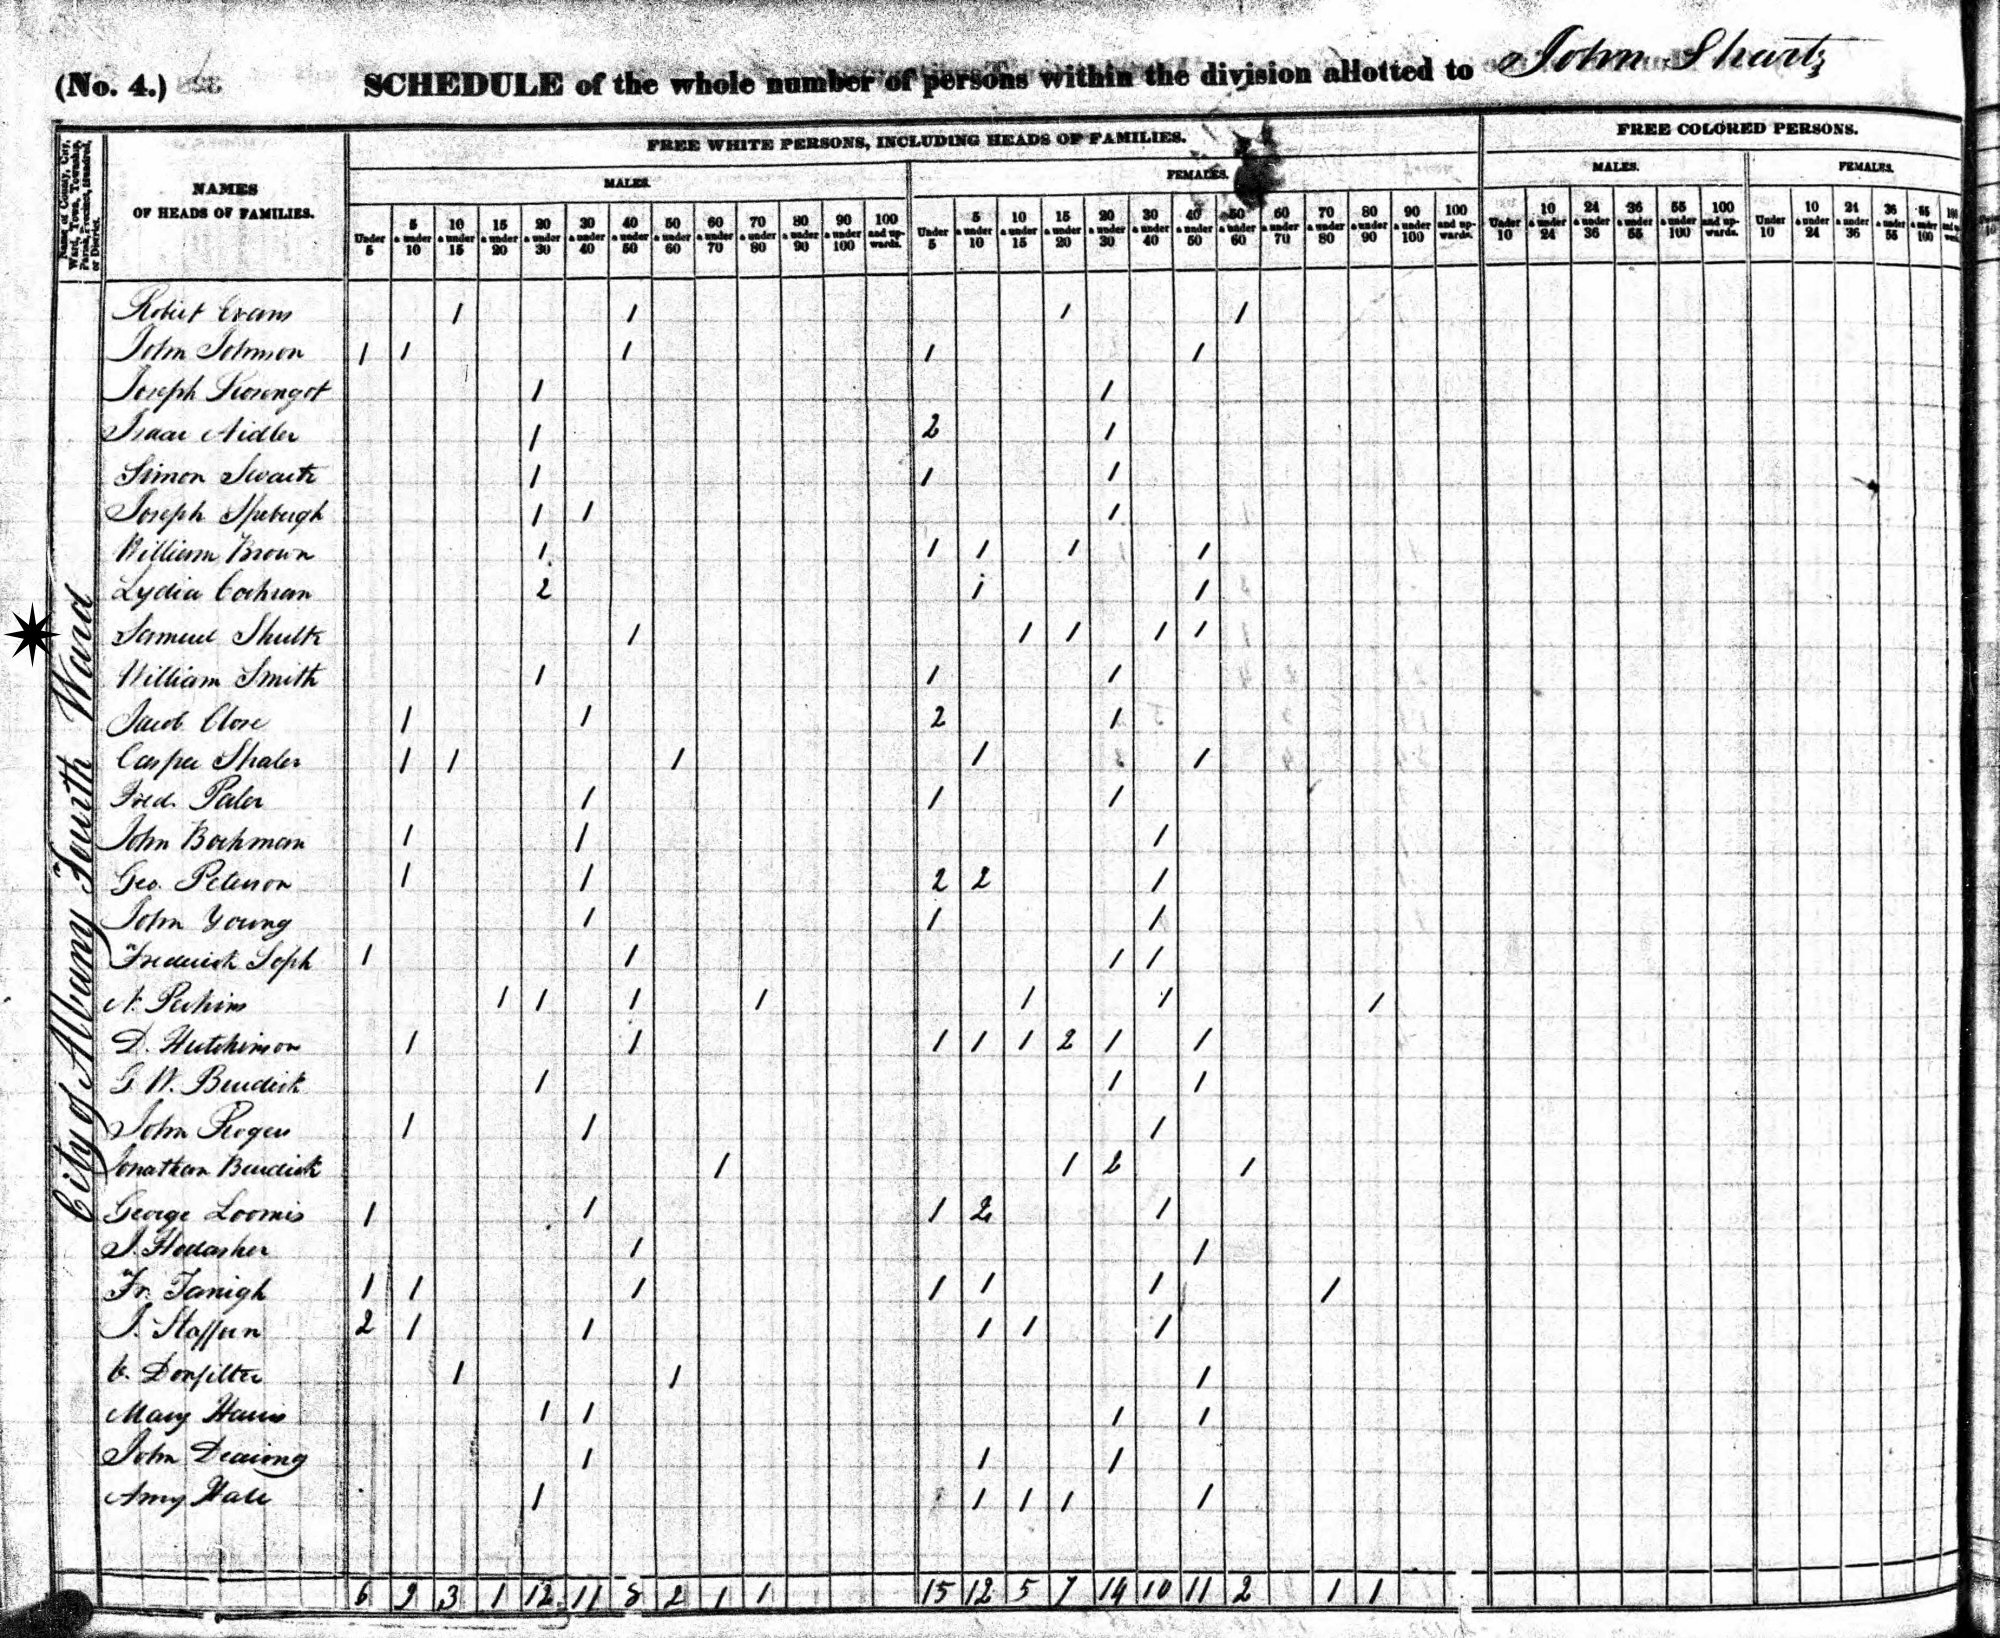 (No. 4.) SCHEDULE of the whole number of persons within the division allotted to John Shartz
Name of County, City, Ward, Town, Township, Parish, Precinct, Hundred, or District.
NAMES OF HEADS OF FAMILIES.
FREE WHITE PERSONS, INCLUDING HEADS OF FAMILIES.
FREE COLORED PERSONS.
MALES. FEMALES. MALES. FEMALES.
Under 5 5 & under 10 10 & under 15 15 & under 20 20 & under 30 30 & under 40 40 & under 50 50 & under 60 60 & under 70 70 & under 80 80 & under 90 90 & under 100 100 and upwards. Under 5 5 & under 10 10 & under 15 15 & under 20 20 & under 30 30 & under 40 40 & under 50 50 & under 60 60 & under 70 70 & under 80 80 & under 90 90 & under 100 100 and upwards. Under 10 10 & under 24 24 & under 36 36 & under 55 55 & under 100 100 and upwards. Under 10 10 & under 24 24 & under 36 36 & under 55 55 & under 100
City of Albany Fourth Ward
Robert Evans 1 1 1 1
John Johnson 1 1 1 1 1
Joseph 1 1
Isaac Aidler 1 2 1
Simon Swartz 1 1 1
Joseph 1 1 1
William Brown 1 1 1 1 1
Lydia Cochran 2 1 1
Samuel Shultz 1 1 1 1 1
William Smith 1 1 1
Jacob Close 1 1 2 1
Casper Shaler 1 1 1 1 1
Fred. Paler 1 1 1
John Bachman 1 1 1
Geo. Peterson 1 1 2 2 1
John Young 1 1 1
Frederick Soph 1 1 1 1
N. Perkins 1 1 1 1 1 1 1
D. Hutchinson 1 1 1 1 1 2 1 1
G. W. Burdick 1 1 1
John Rogers 1 1 1
Jonathan Burdick 1 1 2 1
George Loomis 1 1 1 2 1
J. Hodasher 1 1
Fr. Tanigh 1 1 1 1 1 1 1
J. Staffun 2 1 1 1 1 1
C. Donfilter 1 1 1
Mary Harris 1 1 1 1
John 1 1 1
Amy Hale 1 1 1 1 1
6 9 3 1 12 11 8 2 1 1 15 12 5 7 14 10 11 2 1 1